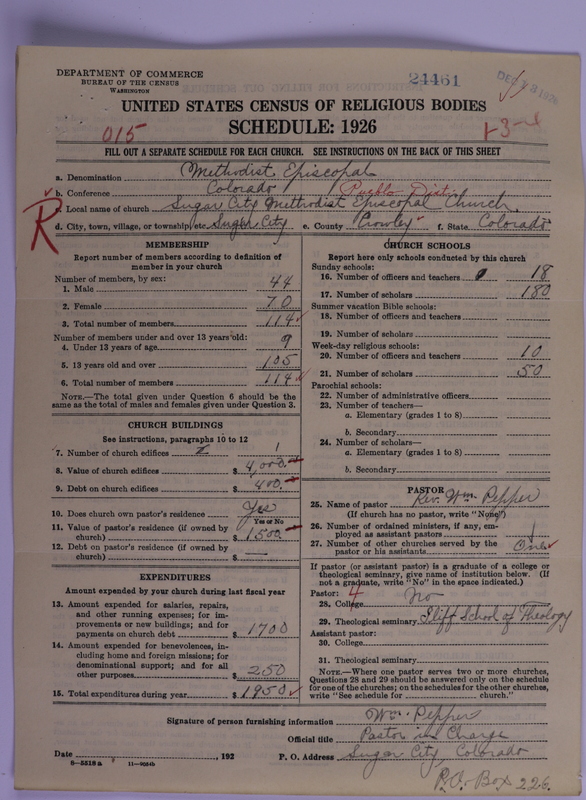 DEPARTMENT OF COMMERCE
BUREAU OF THE CENSUS
WASHINGTON
24461
DEC 1926
UNITED STATES CENSUS OF RELIGIOUS BODIES
SCHEDULE: 1926
015
FILL OUT A SEPARATE SCHEDULE FOR EACH CHURCH. SEE INSTRUCTIONS ON THE BACK OF THIS SHEET
a. Denomination Methodist Episcopal
b. Conference Colorado Pueblo Dist.
R
c. Local name of church Sugar City Methodist Episcopal Church
d. City, town, village, or township, etc. Sugar City e. County Crowley f. State Colorado
MEMBERSHIP
Report number of members according to definition of member in your church
Number of members, by sex:
1. Male 44
2. Female 70
3. Total number of members 114
Number of members under and over 13 years old:
4. Under 13 years of age 9
5. 13 years old and over 105
6. Total number of members 114
NOTE.—The total given under Question 6 should be the same as the total of males and females given under Question 3.
CHURCH BUILDINGS
See instructions, paragraphs 10 to 12
7. Number of church edifices 1
8. Value of church edifices $ 4,000.
9. Debt on church edifices $ 400.
10. Does church own pastor's residence Yes
Yes or No
11. Value of pastor's residence (if owned by church) $ 1500.
12. Debt on pastor's residence (if owned by church) $ —
EXPENDITURES
Amount expended by your church during last fiscal year
13. Amount expended for salaries, repairs, and other running expenses; for improvements or new buildings; and for payments on church debt $ 1700
14. Amount expended for benevolences, including home and foreign missions; for denominational support; and for all other purposes $ 250
15. Total expenditures during year $ 1950
CHURCH SCHOOLS
Report here only schools conducted by this church
Sunday schools:
16. Number of officers and teachers 18
17. Number of scholars 180
Summer vacation Bible schools:
18. Number of officers and teachers
19. Number of scholars
Week-day religious schools:
20. Number of officers and teachers 10
21. Number of scholars 50
Parochial schools:
22. Number of administrative officers
23. Number of teachers—
a. Elementary (grades 1 to 8)
b. Secondary
24. Number of scholars—
a. Elementary (grades 1 to 8)
b. Secondary
PASTOR
25. Name of pastor Rev. Wm. Pepper
(If church has no pastor, write "None")
26. Number of ordained ministers, if any, employed as assistant pastors 1
27. Number of other churches served by the pastor or his assistants One
If pastor (or assistant pastor) is a graduate of a college or theological seminary, give name of institution below. (If not a graduate, write "No" in the space indicated.)
Pastor: 4
28. College No
29. Theological seminary Iliff School of Theology
Assistant pastor:
30. College
31. Theological seminary
NOTE.—Where one pastor serves two or more churches, Questions 28 and 29 should be answered only on the schedule for one of the churches; on the schedules for the other churches, write "See schedule for church."
Signature of person furnishing information Wm. Pepper
Official title Pastor in Charge
Date , 192 P. O. Address Sugar City, Colorado
8—5518 a
P.O. Box 226.